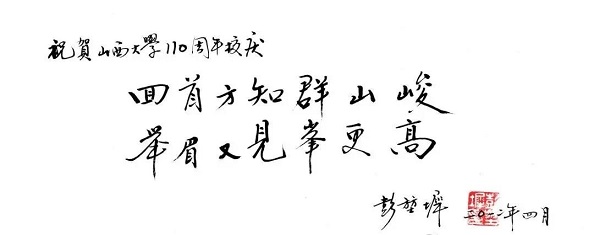 祝賀山西大學110周年校庆
回首方知群山峻
举眉又見峯更高
彭堃墀 二〇一二年四月